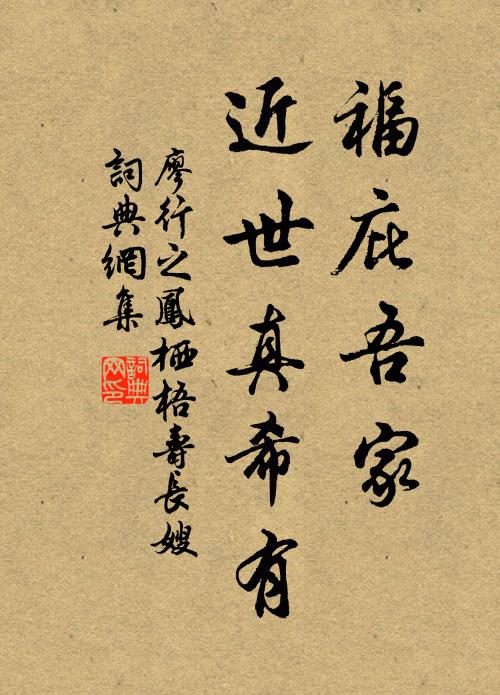 福庇吾家
近世真希有
廖行之鳳栖梧壽長嫂
詞典網集
詞典網印